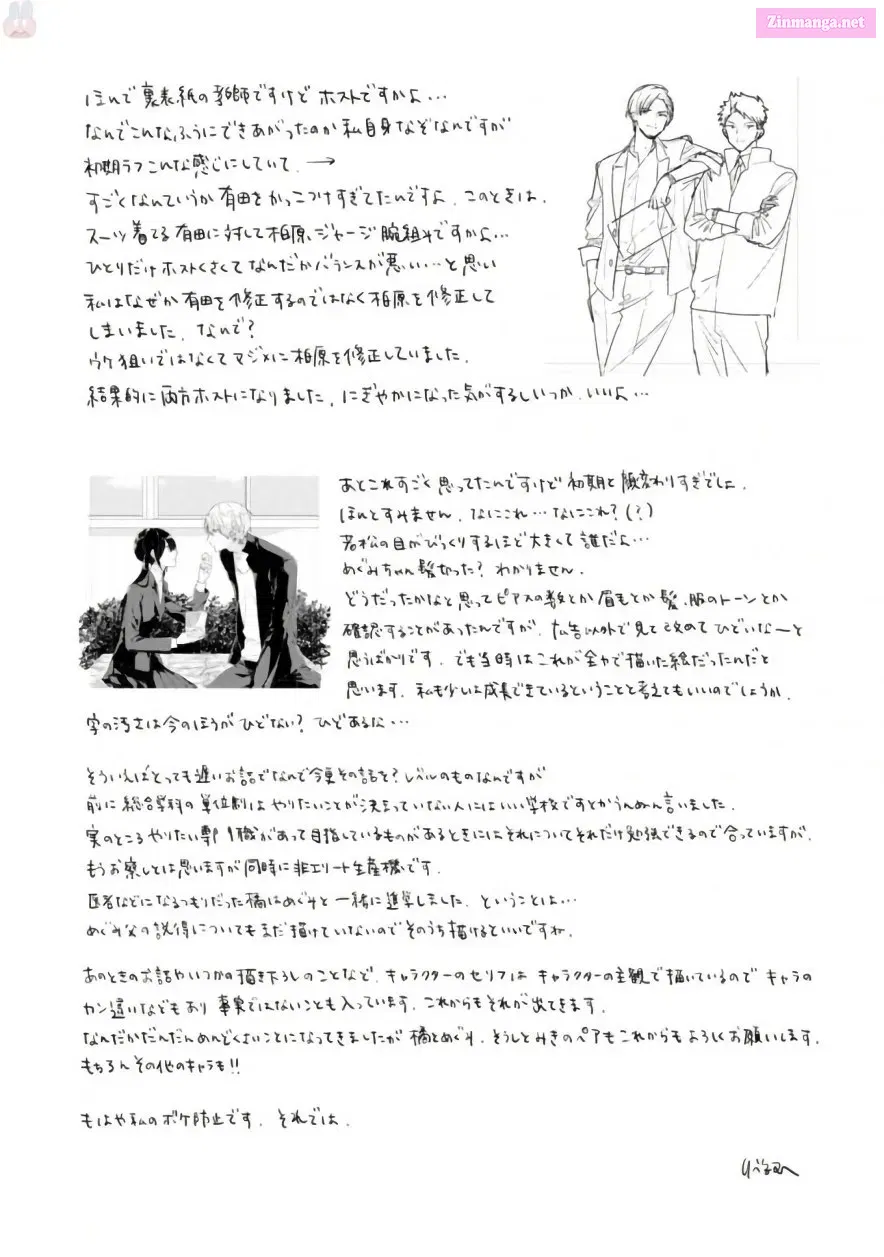 Zinmanga.net
ほんで裏表紙の教師ですけど ホストですかよ…
なんでこんなふうにできあがったのか私自身なぞなんですが
初期ラフこんな感じにしていて. →
すごくなんていうか有田をかっこつけすぎてたんですよ. このときは.
スーツ着てる有田に対して柏原、ジャージ腕組みですかよ…
ひとりだけホストくさくてなんだかバランスが悪い…と思い
私はなぜか有田を修正するのではなく柏原を修正して
しまいました. なんで?
ウケ狙いではなくてマジメに柏原を修正していました.
結果的に両方ホストになりました. にぎやかになった気がするしいっか. いいよ…
あとこれすごく思ってたんですけど初期と顔変わりすぎでしょ.
ほんとすみません. なにこれ…なにこれ?(?)
若松の目がびっくりするほど大きくて誰だよ…
めぐみちゃん髪切った? わかりません.
どうだったかなと思ってピアスの数とか眉毛とか髪、服のトーンとか
確認することがあったんですが. 広告以外で見て改めてひどいなーと
思うばかりです. でも当時はこれが全力で描いた絵だったんだと
思います. 私も少しは成長できているということと考えてもいいのでしょうか.
字の汚さは今のほうがひどない? ひどあるな…
そういえばとっても遅いお話でなんで今更その話を?レベルのものなんですが
前に総合学科の単位制はやりたいことが決まっていない人にはいい学校ですとかうんぬん言いました.
実のところやりたい専門職があって目指しているものがあるときにはそれについてそれだけ勉強できるので合っていますが.
もうお察しとは思いますが同時に非エリート生産機です.
医者などになるつもりだった橘はめぐみと一緒に進学しました. ということは…
めぐみ父の説得についてもまだ描けていないのでそのうち描けるといいですね.
あのときのお話やいつかの描き下ろしのことなど. キャラクターのセリフは キャラクターの主観で描いているので キャラの
カン違いなどもあり 事実ではないことも入っています. これからもそれが出てきます.
なんだかだんだんめんどくさいことになってきましたが 橘とめぐみ. そうしとみきのペアもこれからもよろしくお願いします.
もちろんその他のキャラも!!
もはや私のボケ防止です. それでは.